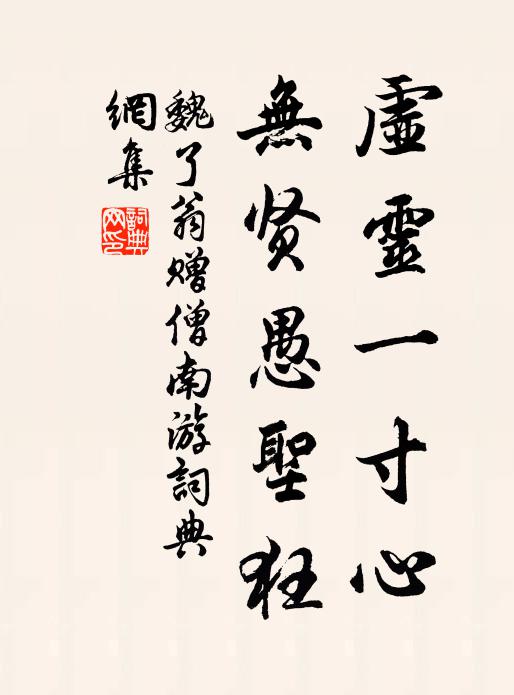 虛靈一寸心
無贤愚聖狂
魏了翁赠僧南游詞典
網集
詞典
网印